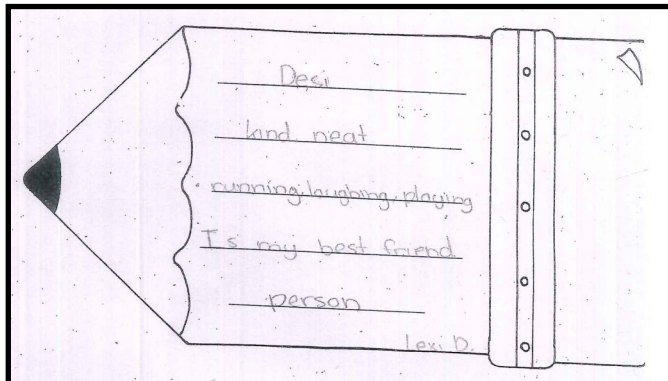 Desi
kind, neat
running, laughing, playing
Is my best friend
person
Lexi D.